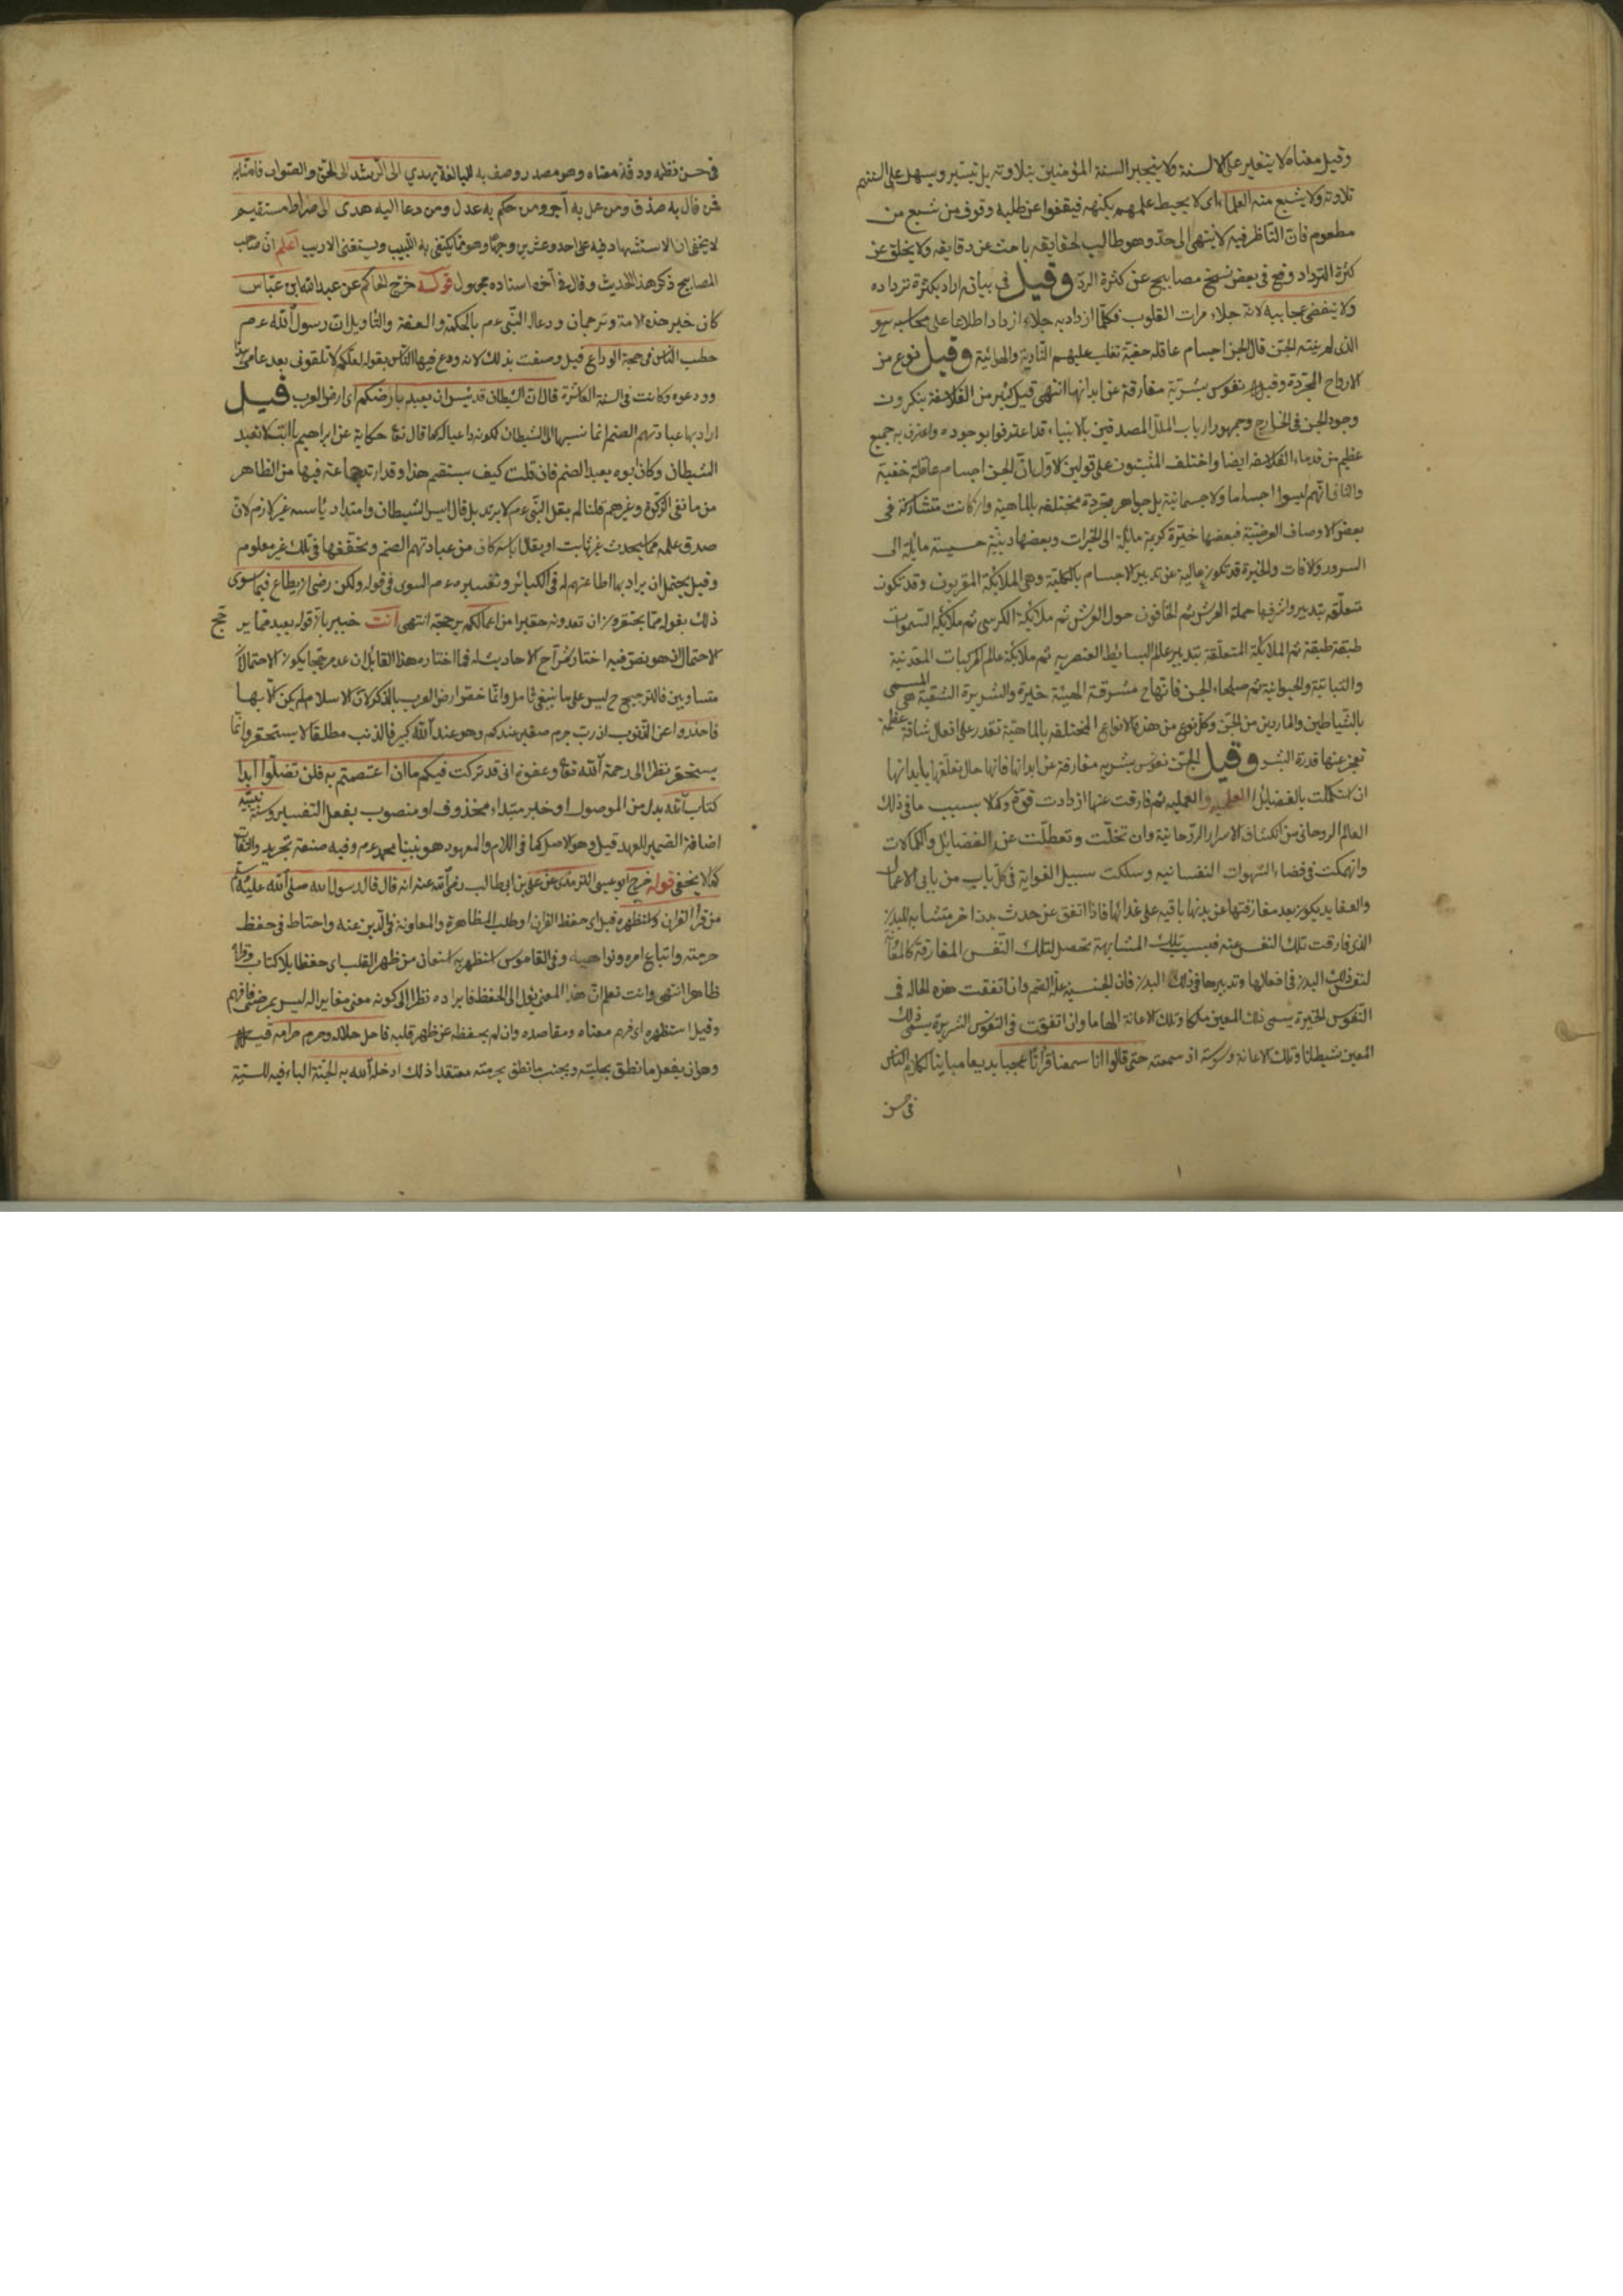 وقيل معناه لا يتغير على الالسنة ولا يتجبر السنة المؤمنين بتلاوته بل يتيسر ويسهل على السنتهم
تلاوته ولا يشبع منه العلماء اى لا يحيط علمهم بكنهه فيقفوا عن طلبه وقوف من شبع من
مطعوم فان الناظر فيه لا ينتهى الى حد وهو طالب لحقايقه باحث عن دقايقه ولا يخلق عن
كثرة الترداد وقع فى بعض نسخ مصابيح عن كثرة الرد وقيل فى بيانه اراد بكثرة ترداده
ولا ينقضى عجايبه لانه جلاء مرات القلوب فكلما ازداد به جلاء ازداد اطلاعا على محاسنه هو
الذى لم ينته الجن قال الجن اجسام عاقلة خفية تغلب عليهم النارية والهوائية وقيل نوع من
الارواح المجردة وقيل نفوس بشرية مفارقة عن ابدانها انتهى قيل كثير من الفلاسفة ينكرون
وجود الجن فى الخارج وجمهور ارباب الملل المصدقين بالانبياء قد اعترفوا بوجوده واعترف به جميع
عظيم من قدماء الفلاسفه ايضا واختلف المثبتون على قولين الاول ان الجن اجسام عاقلة خفية
والثانى انهم ليسوا اجساما ولا جسمانية بل جواهر مجردة مختلفه بالماهية وان كانت متشاركة فى
بعض الاوصاف العرضية فبعضها خيرة كريمة مائلة الى الخيرات وبعضها دنية خسيسة مايلة الى
السرور ولافات والخيرة قد تكون عالية عن تدبير الاجسام بالكلية وهى الملائكة المقربون وقد تكون
متعلقه بتدبير واشرفها حملة العرش ثم الحافون حول العرش ثم ملائكة الكرسى ثم ملائكة السموات
طبقة طبقة ثم الملائكة المتعلقة بتدبير عالم البسائط العنصريه ثم ملائكة عالم المركبات المعدنية
والنباتية والحيوانية ثم صلحاء الجن فانها ح مشرقة الهيئة خيرة والشريرة الشقية هى المسمى
بالشياطين والماردين من الجن وكل نوع من هذه الانواع المختلفه بالماهية تقدر على افعال شاقة عظيمة
تعجز عنها قدرة البشر وقيل الجن نفوس بشريه مفارقة عن ابدانها فانها حال تعلقها بابدانها
ان استكملت بالفضايل العلميه والعمليه ثم فارقت عنها ازدادت قوة وكمالا بسبب ما فى ذلك
العالم الروحانى من انكشاف الاسرار الروحانية وان تخلت وتعطلت عن الفضايل والكمالات
وانهمكت فى قضاء الشهوات النفسانيه وسلكت سبيل الغواية فى كل باب من بابى الاعمال
والعقايد يكون بعد مفارقتها عن بدنها باقيه على فاذا اتفق عن حدث بدن اخر متشابه للبدن
الذى فارقت تلك النفس عنه فبسبب تلك المشابهة تحصل لتلك النفس المفارقة
لنفس ذلك البدن فى افعالها وتدبيرها فى ذلك البدن فان الجنسية علة الضم وان اتفقت هذه الحاله فى
النفوس الخيرة يسمى ذلك المعين ملكا وتلك الاعانة الهاما وان اتفقت فى النفوس الشريرة يسمى ذلك
المعين شيطانا وتلك الاعانة وسوسة اذ سمعته حتى قالوا انا سمعنا قرآنا عجبا بديعا مباينا لكلام الناس
فى حسن
فى حسن نظمه ودقة معناه وهو مصدر وصف به للمبالغة يهدي الى الرشد الى الحق والصواب فامنا به
من قال به صدق ومن عمل به آجر ومن حكم به عدل ومن دعا اليه هدى الى صراط مستقيم
لا يخفى ان الاستشهاد فيه على احد وعشرين وجها وهو مما يكتفى به اللبيب ويستغنى الاريب اعلم ان صاحب
المصابيح ذكر هذا الحديث وقال فى آخره اسناده مجهول قوله خرج الحاكم عن عبد الله ابن عباس
كان خير هذه الامة وترجمان ودعا له النبى عم بالحكمة والفقه والتأويلات رسول الله عم
خطب الناس فى حجة الوداع قيل وصفت بذلك لانه ودع فيها الناس بقوله لعلكم لا تلقونى بعد عامى هذا
وودعوه وكانت فى السنة العاشرة قال ان الشيطان قد يئس ان يعبد بارضكم اى ارض العرب قيل
اراد بها عبادتهم الصنم انما نسبها الى الشيطان لكونه داعيا لها كما قال تعا حكاية عن ابراهيم يا ابت لا تعبد
الشيطان وكان ابوه يعبد الصنم فان قلت كيف يستقيم هذا وقد ارتد جماعة فيها من الظاهر
من مانعى الزكوة وغيرهم قلنا لم يقل النبى عم لا يرتد بل قال ايس الشيطان وامتداد يأسه غير لازم لان
صدق علمه مما يحدث غير ثابت او يقال يأسه كان من عبادتهم الصنم وتحققها فى تلك غير معلوم
وقيل يحتمل ان يراد بها اطاعتهم له فى الكبائر وتفسيره عم السوى فى قوله ولكن رضى ان يطاع فيما سوى
ذلك بقوله مما يحتقرون ان تعدونه حقيرا من اعمالكم يرجحه انتهى انت خبير بان قوله بعيد مما ير
جح
الاحتمال الذى هو بصدد فيه اختار شراح الاحاديث له فما اختاره هذا القايل ان عدم رجحا يكون الاحتمالان
متساويين فالترجيح ح ليس على ما ينبغى تامل وانما خص ارض العرب بالذكر لان الاسلام لم يكن الا بها
فاحذروا عن الذنوب اذ رب جرم صغير عندكم وهو عند الله كبير فالذنب مطلقا لا يستحقر وانما
يستحقر نظرا الى رحمة الله تعا وعفوه انى قد تركت فيكم ما ان اعتصمتم به فلن تضلوا ابدا
كتاب الله بدل من الموصول او خبر مبتداء محذوف او منصوب بفعل التفسير وسنة نبيه
اضافة الضمير للعهد قيل وهو الاصل كما فى اللام والمعهود هو نبينا محمد عم وفيه صنعة تجريد والتفات
كما لا يخفى قوله خرج ابو عيسى الترمذى عن على بن ابى طالب رضى الله عنه انه قال قال رسول الله صلى الله عليه وسلم
من قرأ القرآن واستظهره قيل اى حفظ القرآن او طلب المظاهرة والمعاونة فى الدين عنه واحتاط فى حفظ
حرمته واتباع امره ونواهيه وفى القاموس استظهر به استعان من ظهر القلب اى حفظا بلا كتاب وقرأه
ظاهرا انتهى وانت تعلم ان هذا المعنى يؤل الى الحفظ فايراده نظرا الى كونه معنى مغايرا له ليس بمرضى فافهم
وقيل استظهره اى فهم معناه ومقاصده وان لم يحفظه عن ظهر قلبه فاحل حلاله وحرم حرامه قيل
وهو ان يفعل ما نطق بحليته ويجتنب ما نطق بحرمته معتقدا ذلك ادخله الله به الجنة الباء فيه للسببية